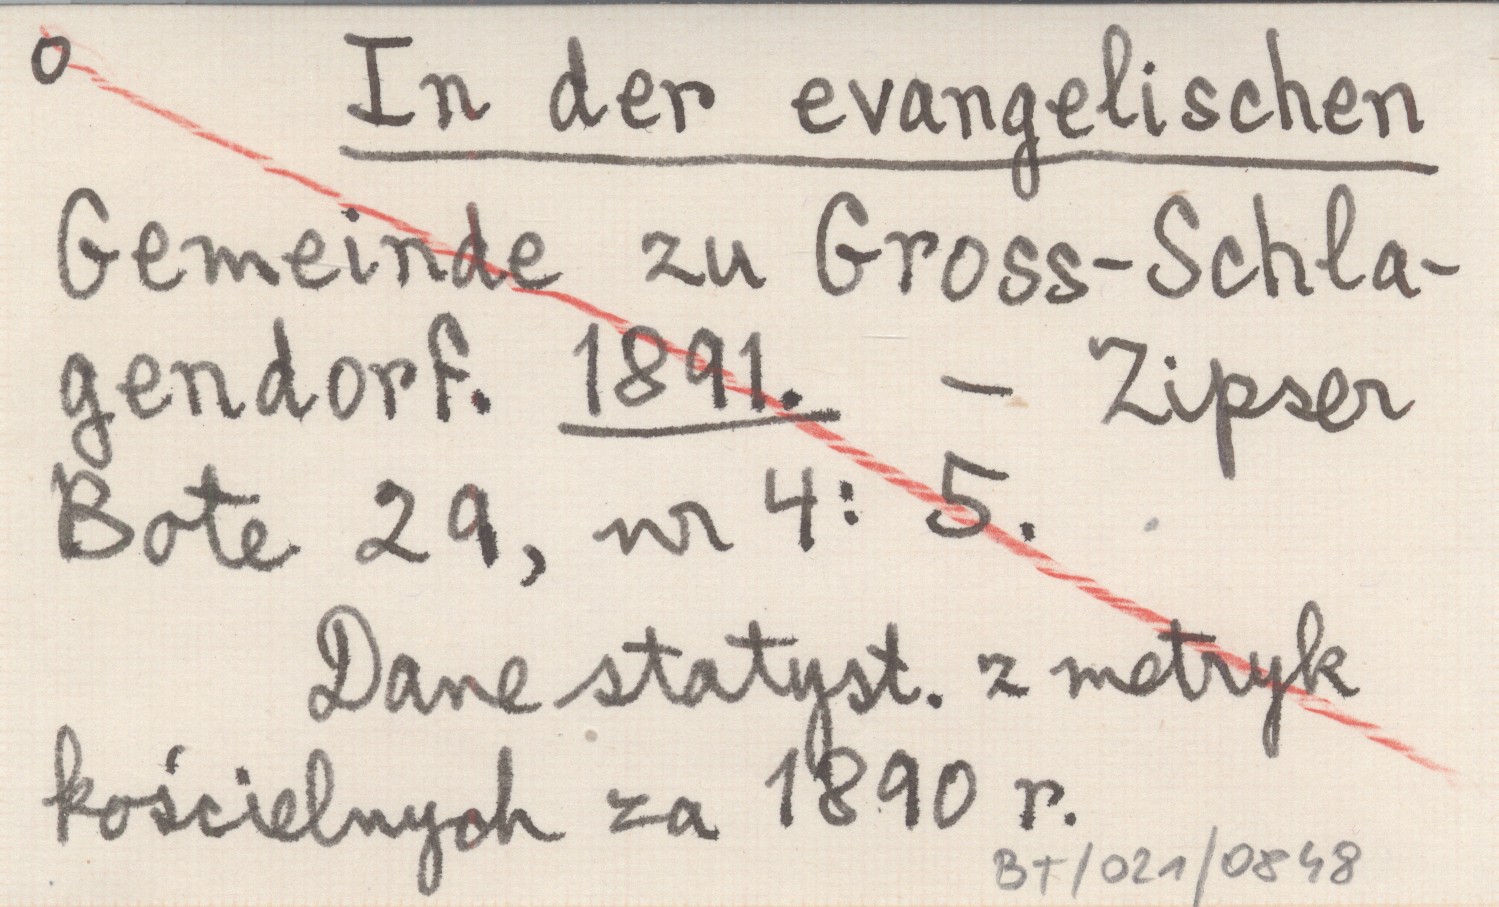 o In der evangelischen
Gemeinde zu Gross-Schla-
gendorf. 1891. – Zipser
Bote 29, nr 4: 5.
Dane statyst. z metryk
kościelnych za 1890 r.
BT/021/0848